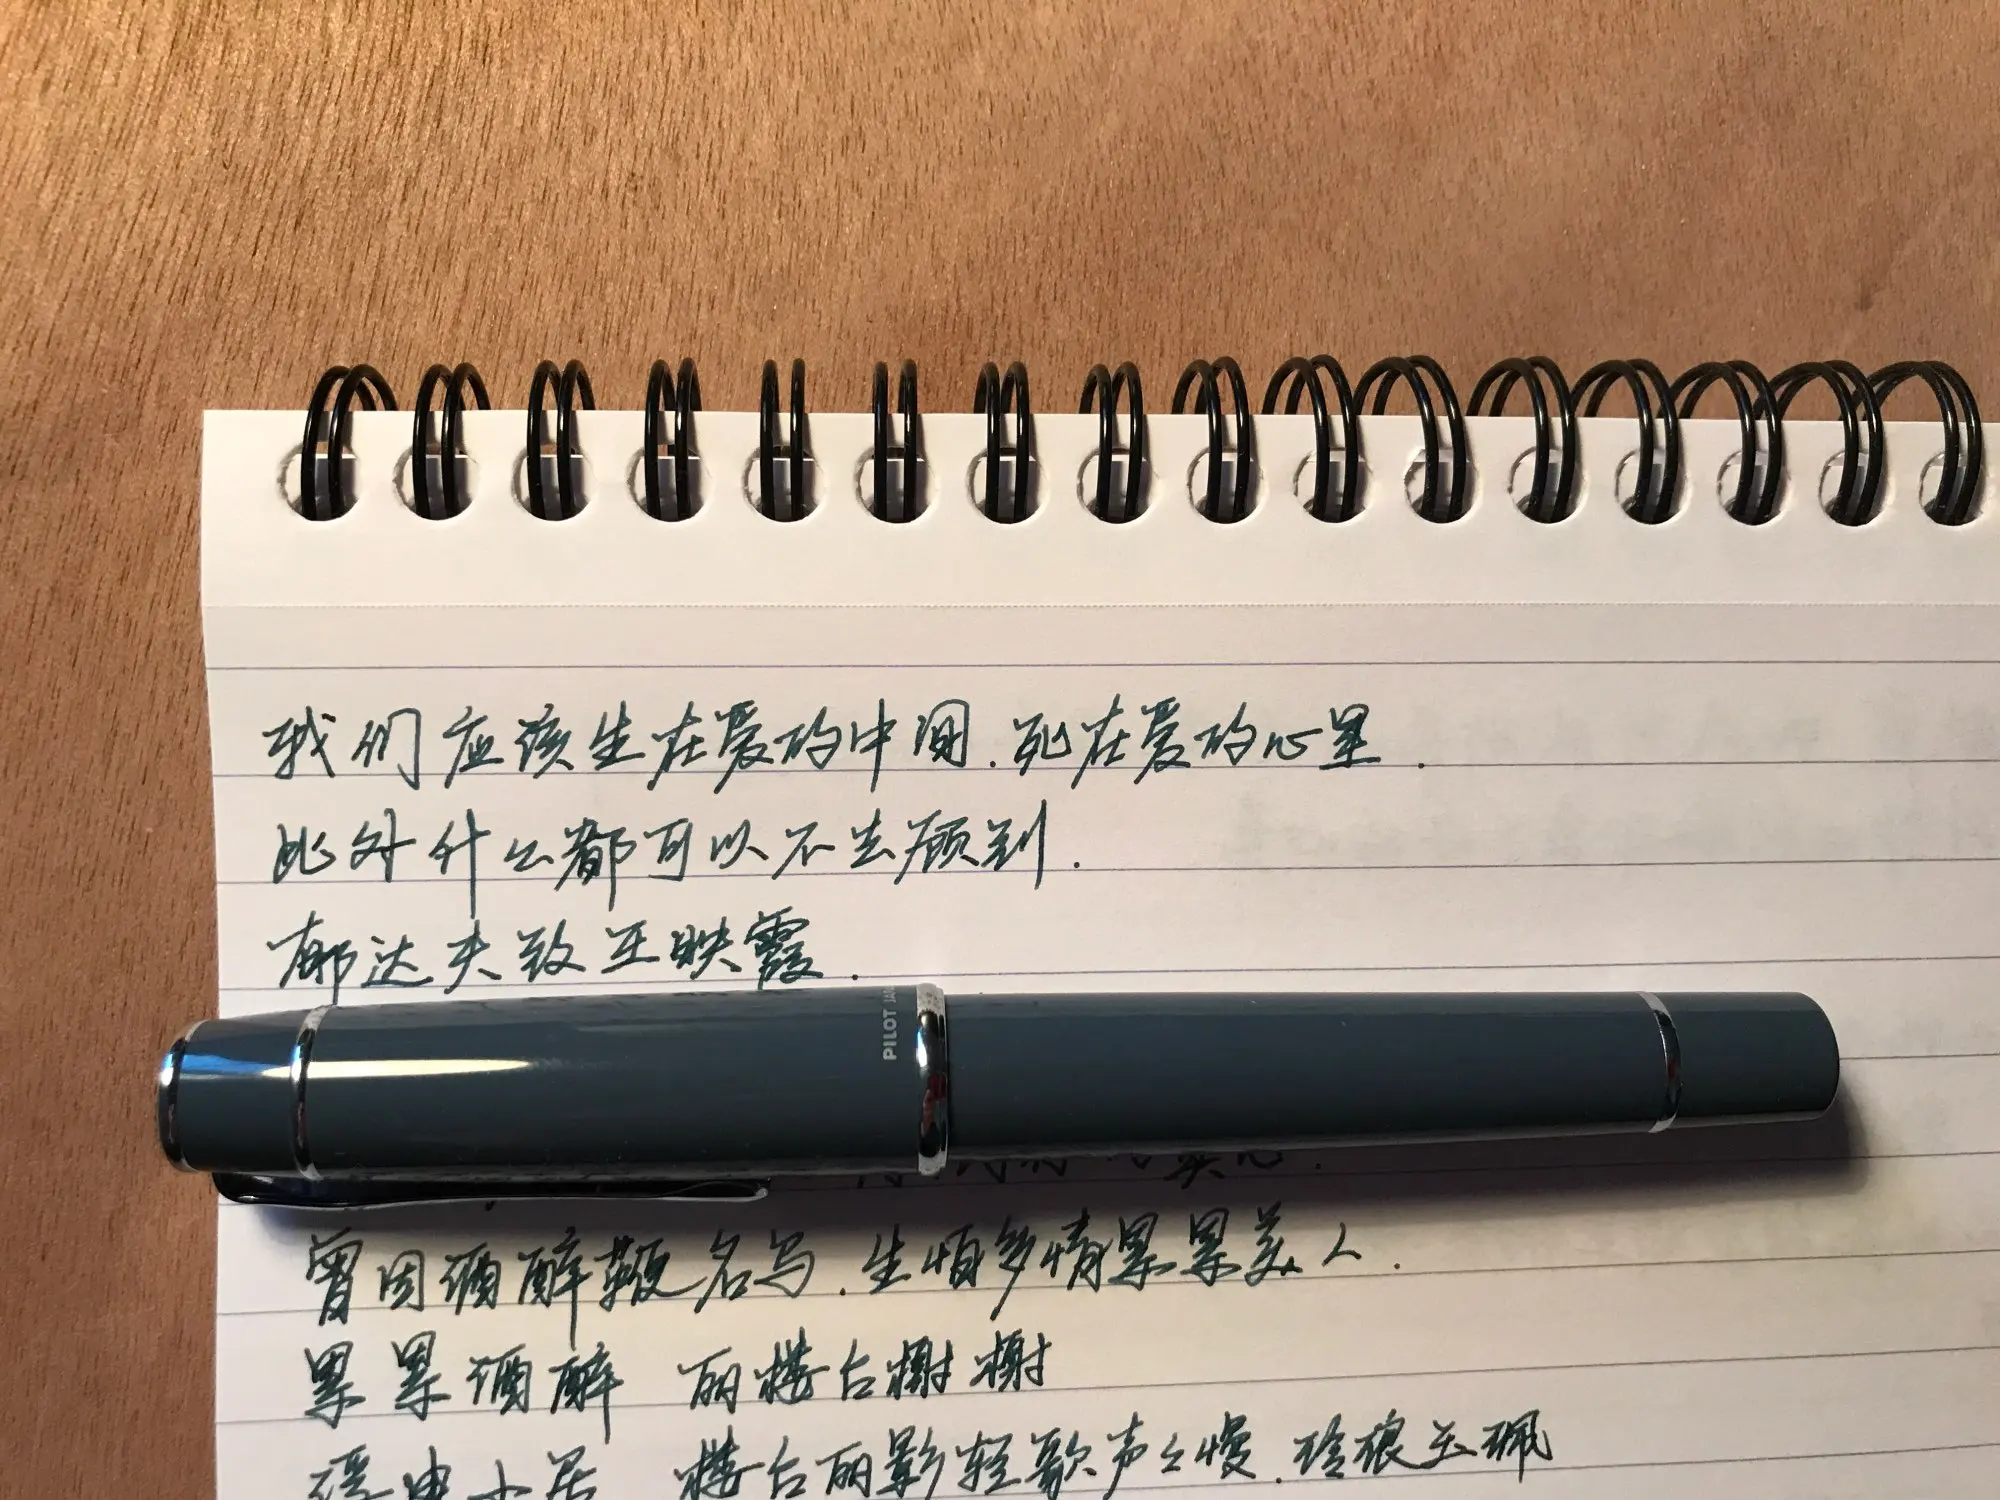 我们应该生在爱的中间.死在爱的心里.
此外什么都可以不去顾到.
郁达夫致王映霞.
PILOT JA
曾因酒醉鞭名马.生怕多情累累美人.
累累酒醉 丽楼台榭榭
楼台丽影轻歌声声慢.玲琅玉珮